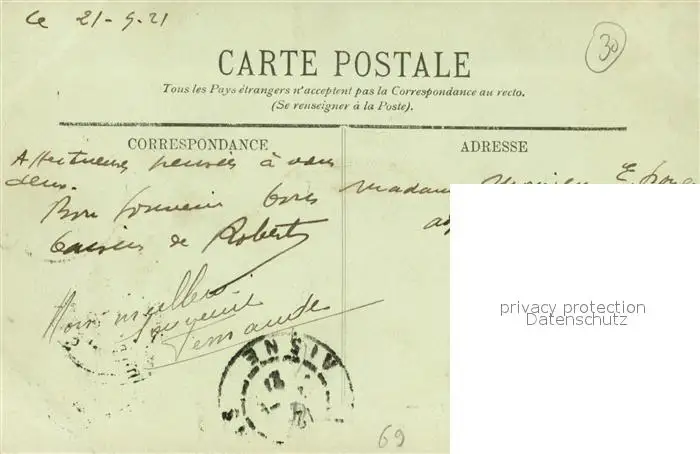 Le 21-9-21
30
CARTE POSTALE
Tous les Pays étrangers n'acceptent pas la Correspondance au recto.
(Se renseigner à la Poste).
CORRESPONDANCE
ADRESSE
Affectueuses pensées à vous
deux.
Bon Souvenir bons
baisers de Robert
Madame
E.
Mon meilleur
Souvenir
AISNE
69
privacy protection
Datenschutz